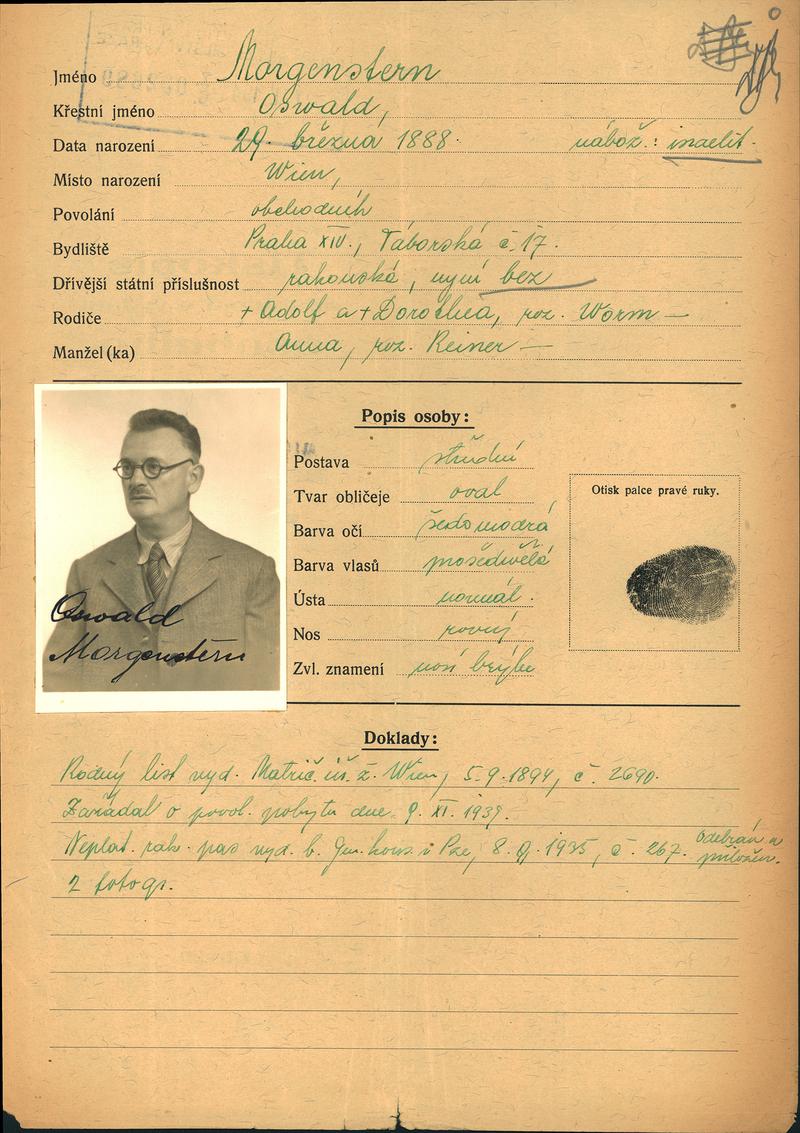 Jméno Morgenstern
Křestní jméno Oswald,
Data narození 29. března 1888. nábož.: israelit.
Místo narození Wien,
Povolání obchodník
Bydliště Praha XIV., Táborská č. 17.
Dřívější státní příslušnost rakouská, nyní bez
Rodiče + Adolf a + Dorothea, roz. Worm —
Manžel (ka) Anna, roz. Reiner —
Popis osoby:
Postava střední
Tvar obličeje oval
Barva očí šedomodrá
Barva vlasů prošedivělá
Ústa normál.
Nos rovný
Zvl. znamení nosí brýle
Otisk palce pravé ruky.
Oswald
Morgenstern
Doklady:
Rodný list vyd. Matrič. úř. ž. Wien, 5.9.1894, č. 2690.
Zažádal o povol. pobytu dne 9. XI. 1939.
Neplat. rak. pas vyd. b. Gen. konz. v Pze, 8.9.1935, č. 267. Odebrán a
přiložen.
2 fotogr.